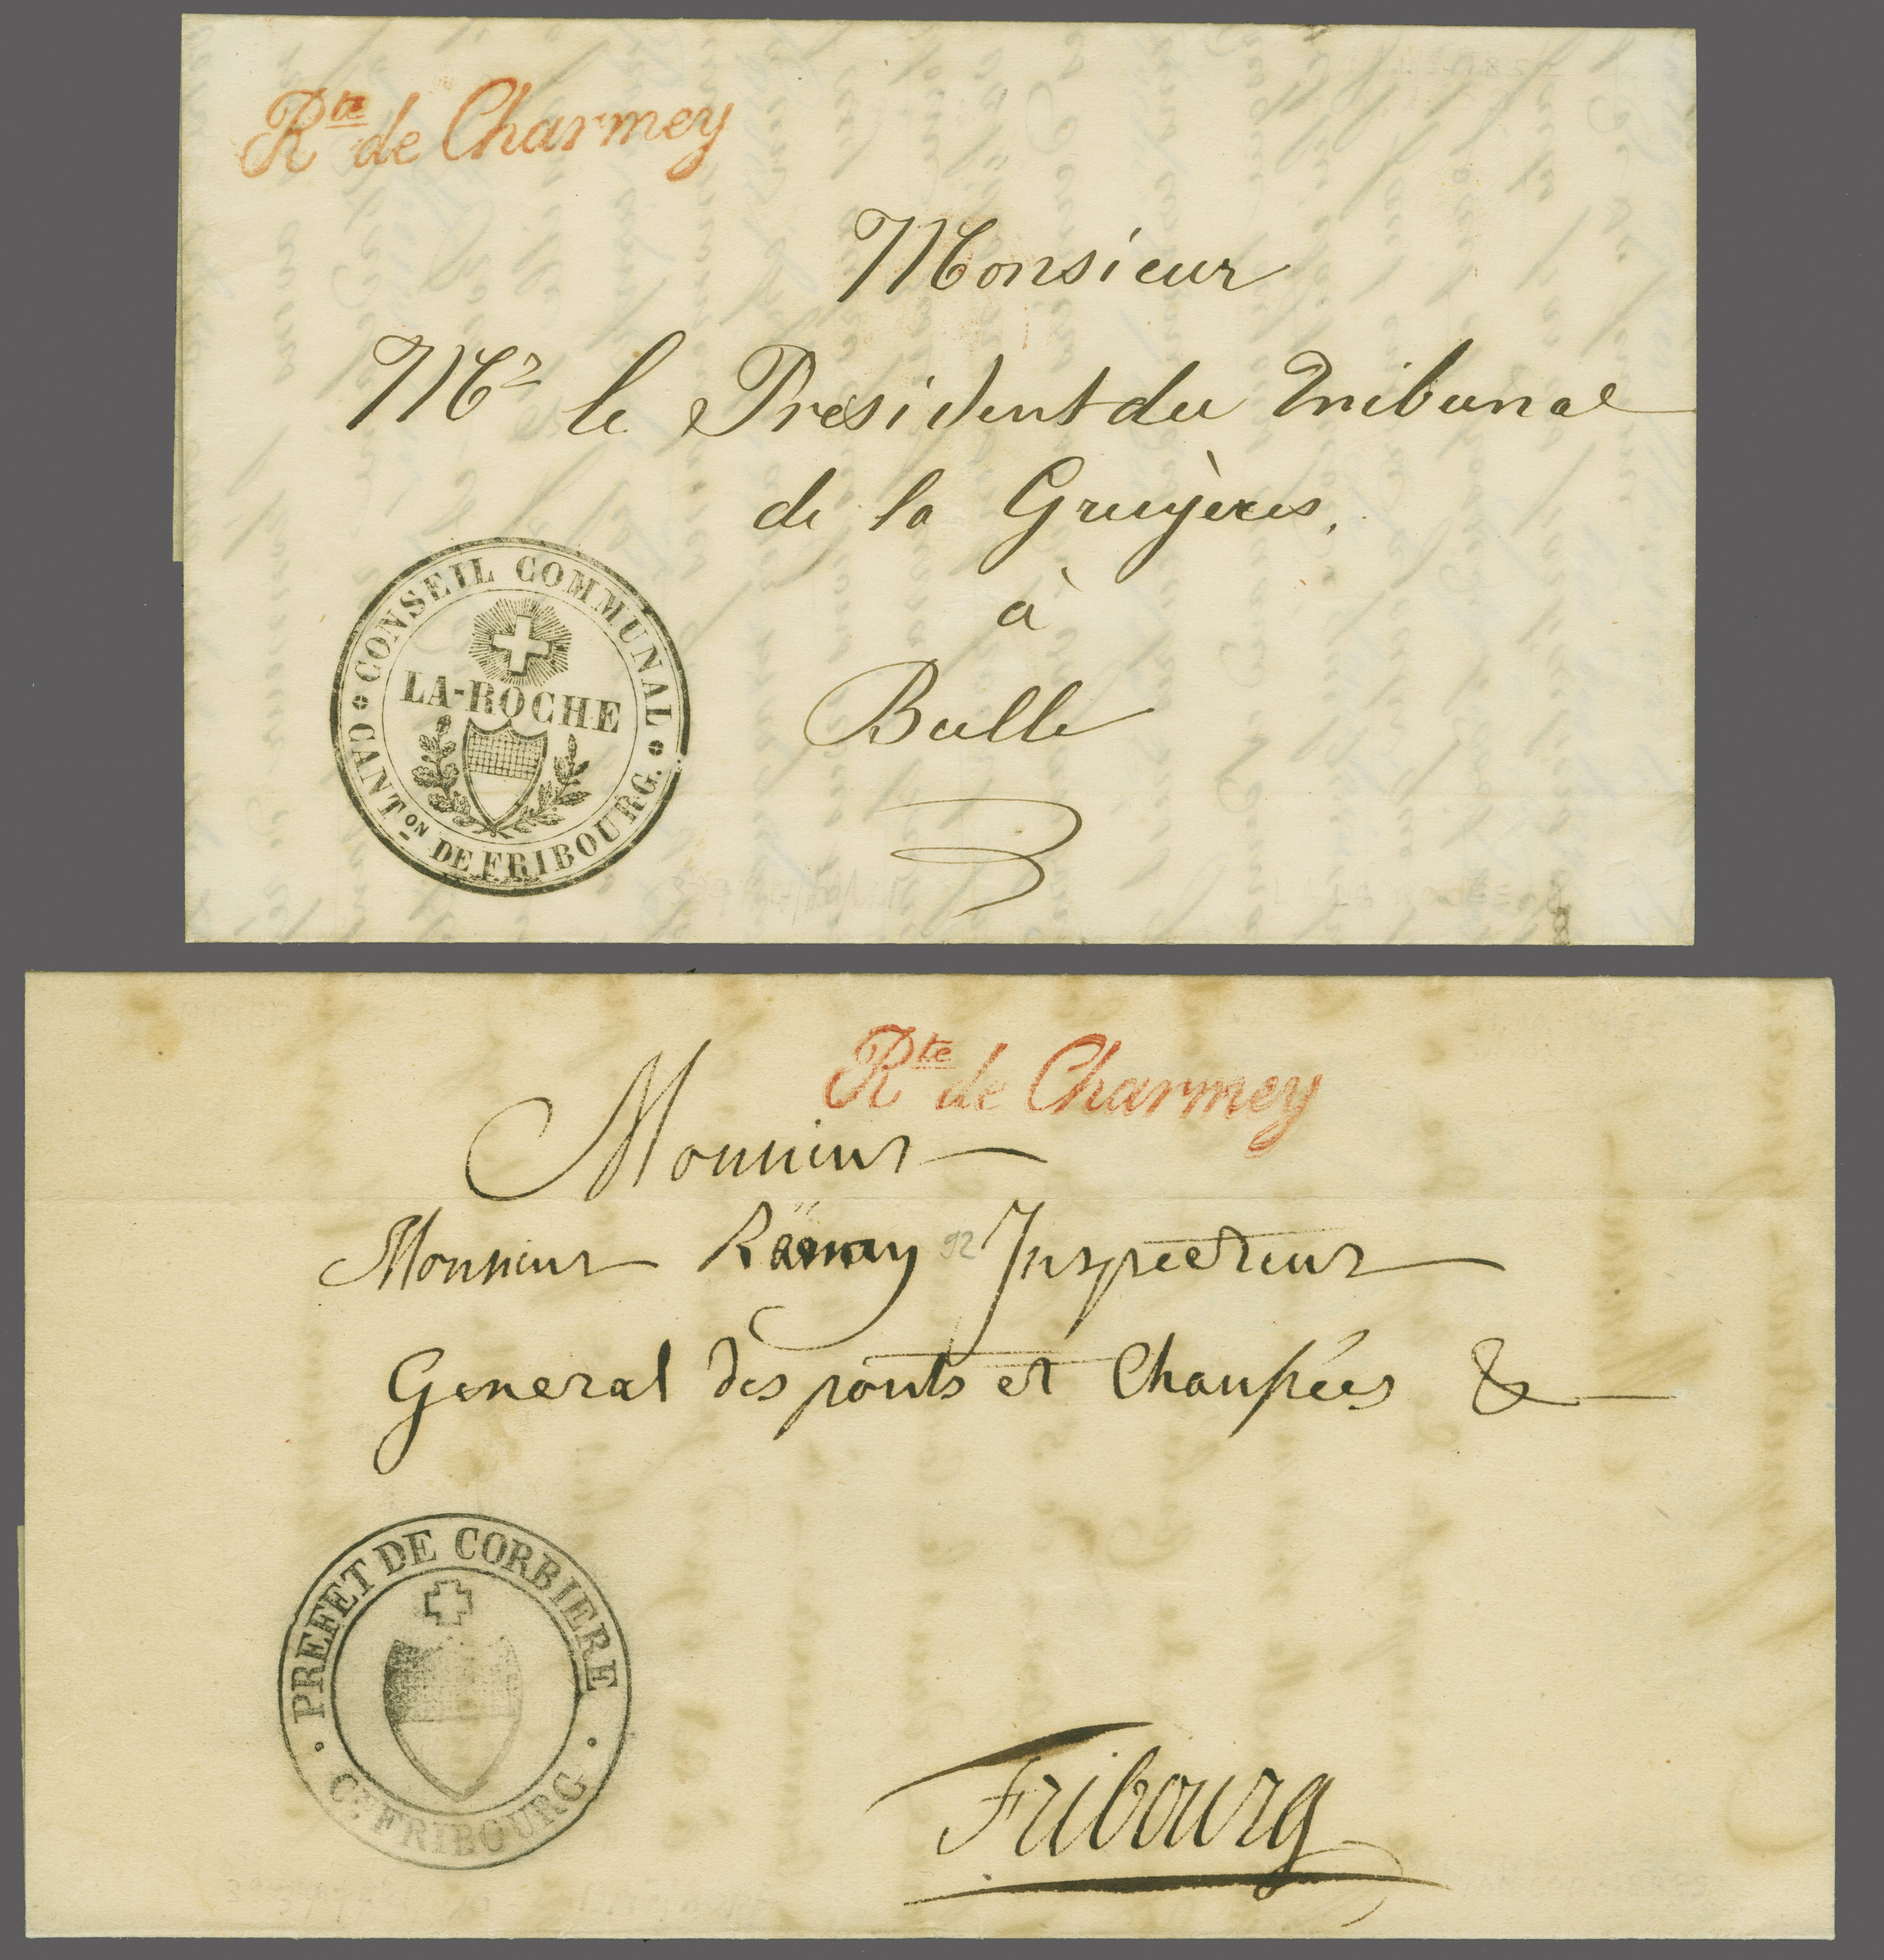 Rte de Charmey
Monsieur
Mr le Président du Tribunal
de la Gruyères,
à
Bulle
CONSEIL COMMUNAL
LA-ROCHE
CANTON DE FRIBOURG.
Rte de Charmey
Monsieur
Monsieur Rämy Inspecteur
92
General des ponts et Chaussées &
PREFET DE CORBIERE
CN FRIBOURG
Fribourg